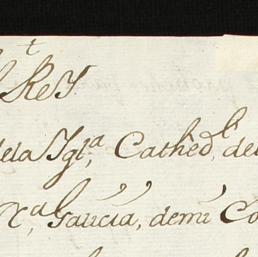 l Rey
dela Ygl.ª Cathed.l de
N.ª Galicia, demi Co